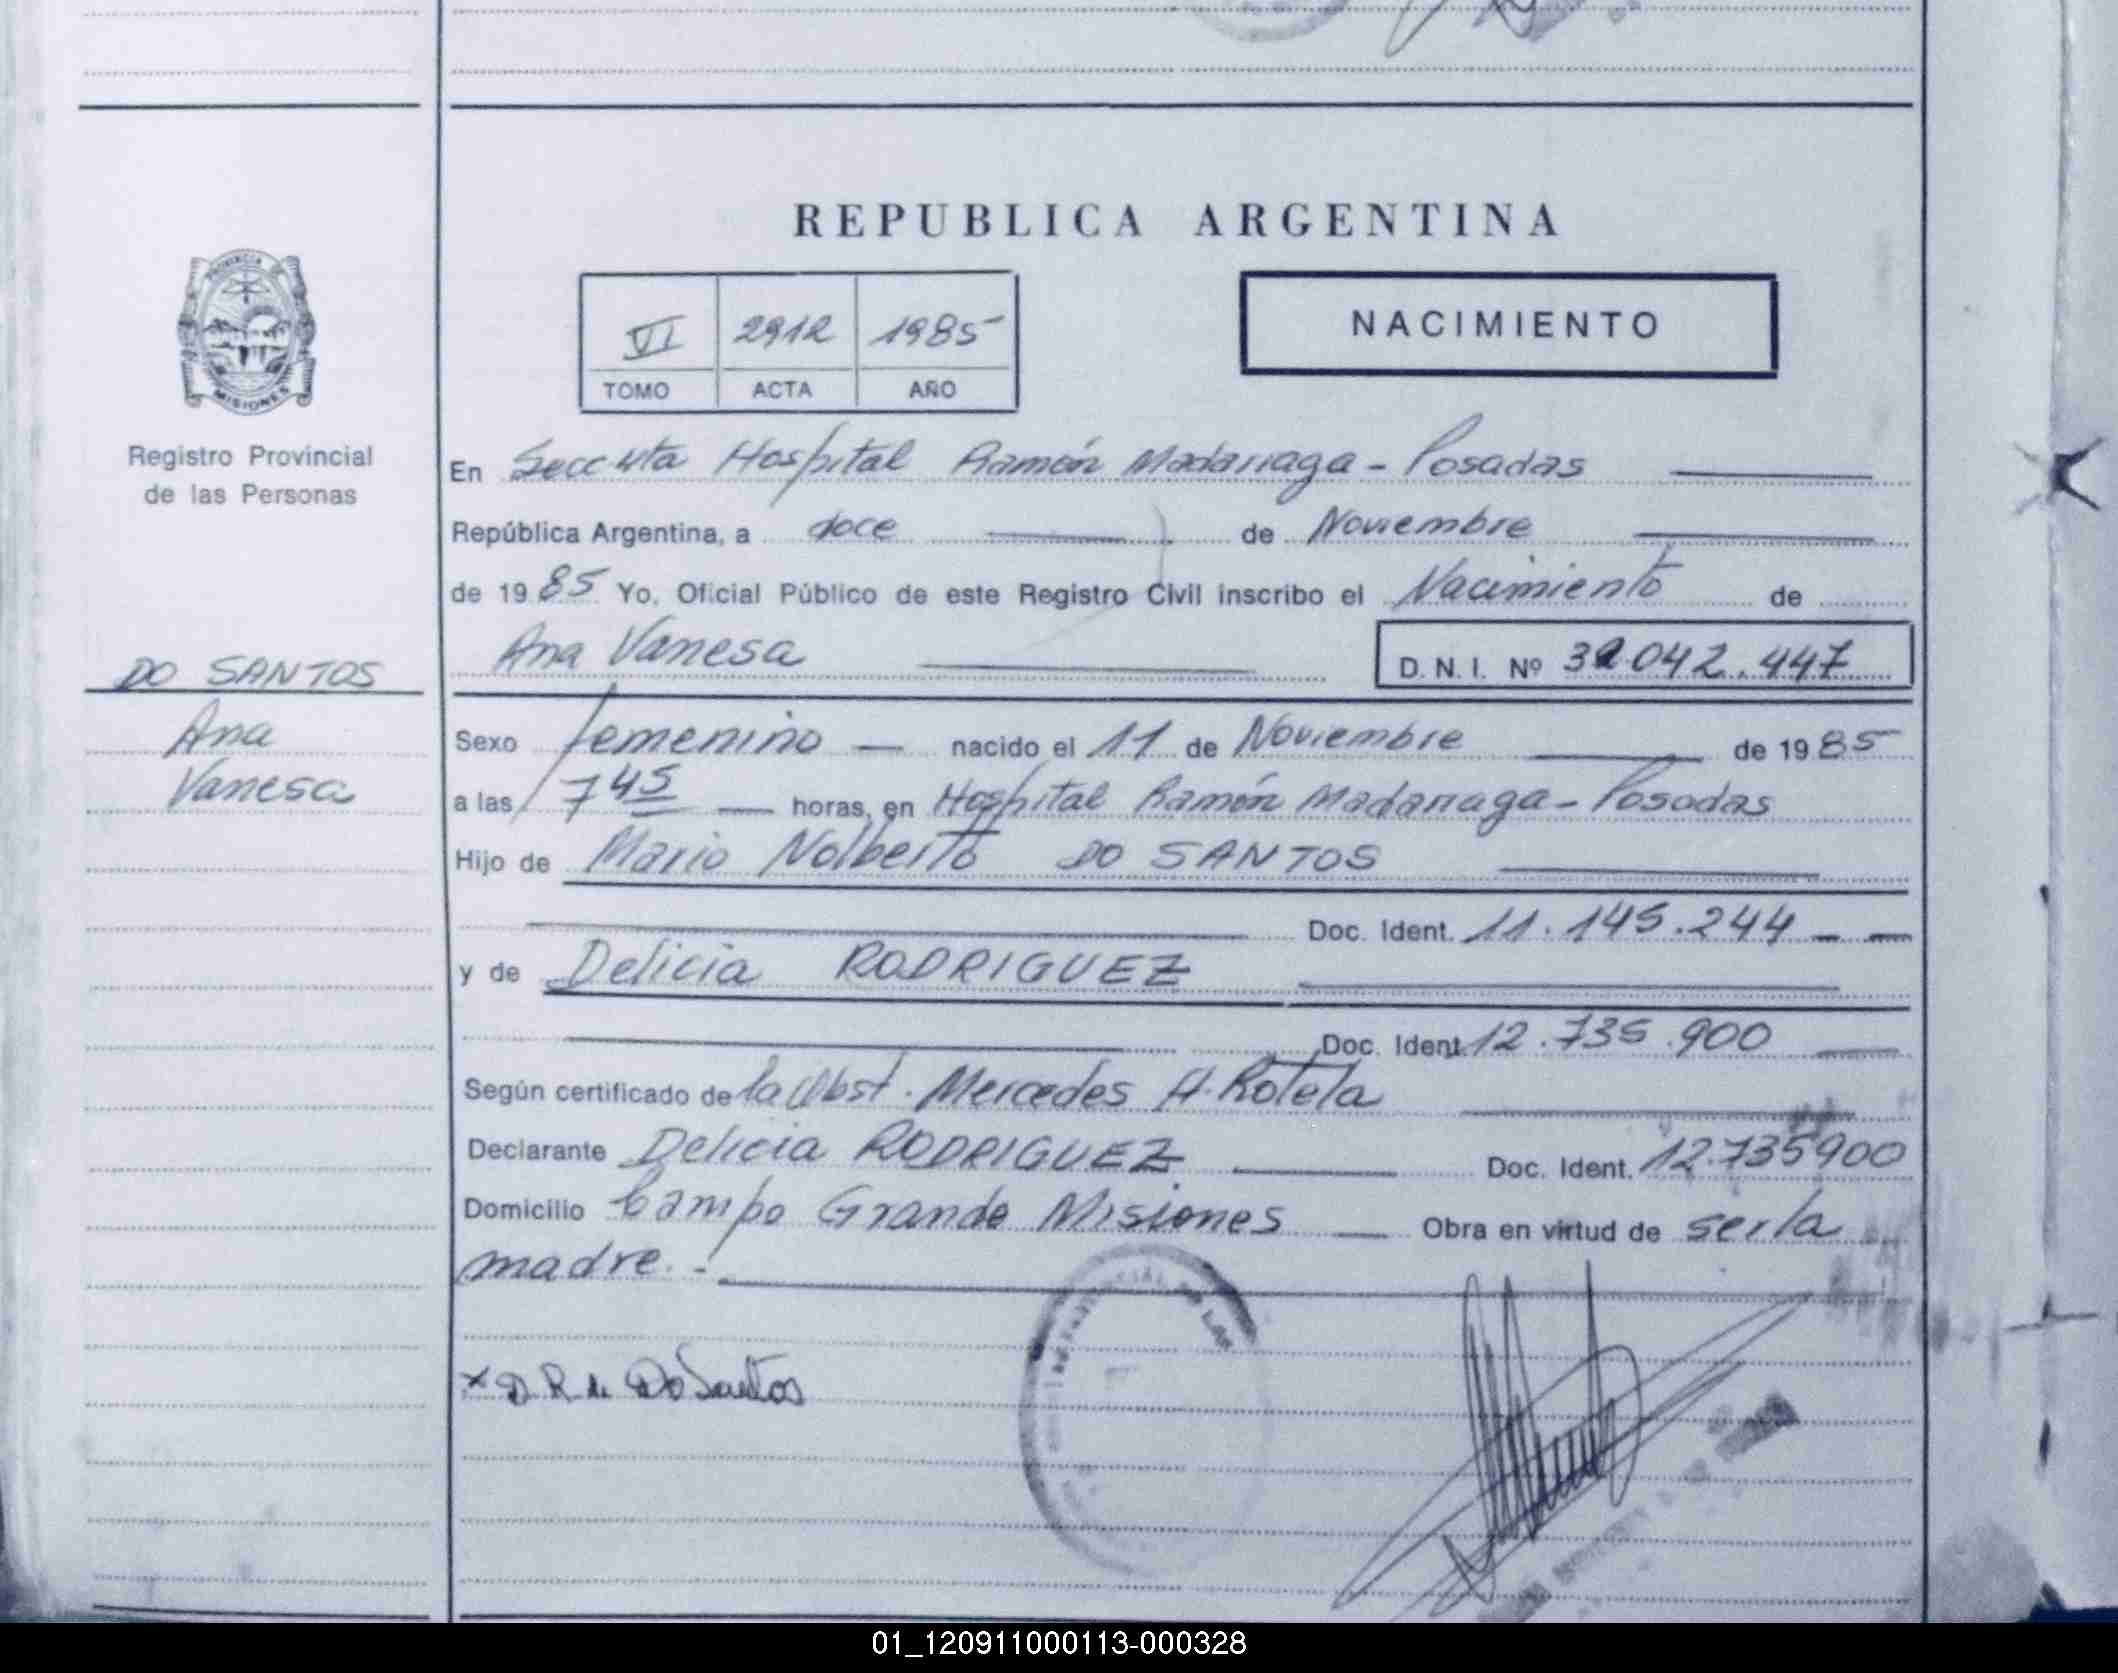 REPUBLICA ARGENTINA
PROVINCIA DE
MISIONES
Registro Provincial
de las Personas
VI 2912 1985
TOMO ACTA AÑO
NACIMIENTO
En Secc 4ta Hospital Ramón Madariaga - Posadas
República Argentina, a doce de Noviembre
de 1985 Yo, Oficial Público de este Registro Civil inscribo el Nacimiento de
Ana Vanesa D. N. I. Nº 32.042.447
DO SANTOS
Ana
Vanesa
Sexo femenino nacido el 11 de Noviembre de 1985
a las 7 45 horas, en Hospital Ramón Madariaga - Posadas
Hijo de Mario Nolberto DO SANTOS
Doc. Ident. 11.145.244
y de Delicia RODRIGUEZ
Doc. Ident. 12.735.900
Según certificado de la Obst. Mercedes H. Rotela
Declarante Delicia RODRIGUEZ Doc. Ident. 12.735900
Domicilio Campo Grande Misiones Obra en virtud de ser la
madre.-
x D. R. de Do Santos
01_120911000113-000328